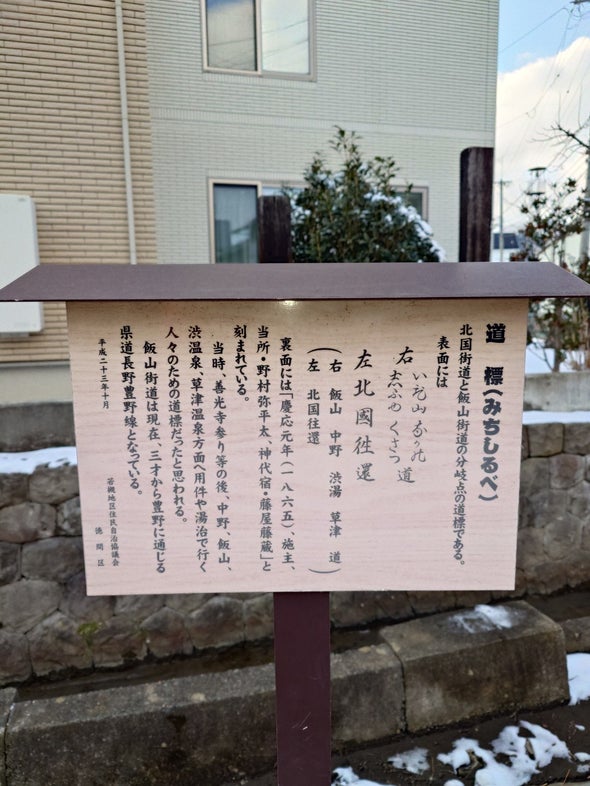 道 標(みちしるべ)
北国街道と飯山街道の分岐点の道標である。
表面には
右 いゝ山 なか乃 志ぶゆ くさつ 道
左 北國徃還
(右 飯山 中野 渋湯 草津 道)
(左 北国往還)
裏面には「慶応元年(一八六五)、施主、
当所・野村弥平太、神代宿・藤屋藤蔵」と
刻まれている。
当時、善光寺参り等の後、中野、飯山、
渋温泉、草津温泉方面へ用件や湯治で行く
人々のための道標だったと思われる。
飯山街道は現在、三才から豊野に通じる
県道長野豊野線となっている。
平成二十三年十月
若槻地区住民自治協議会
徳間区